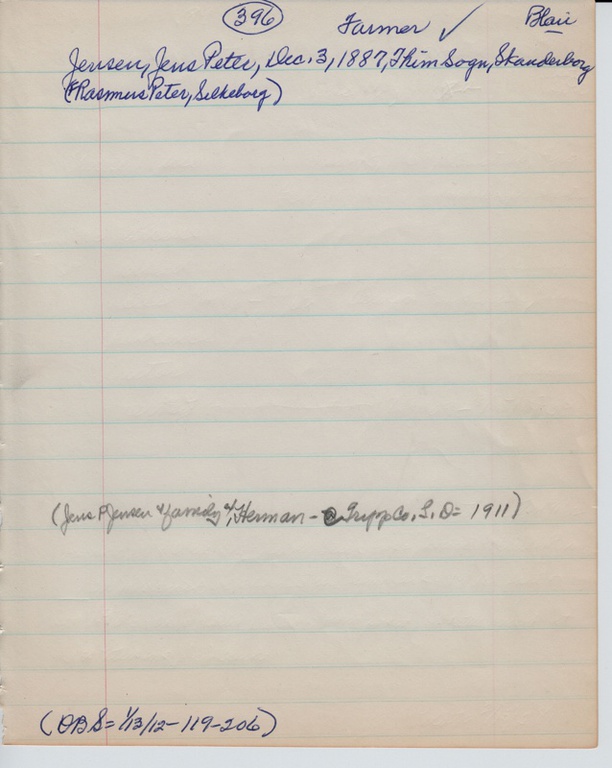 396 Farmer ✓ Blair
Jensen, Jens Peter, Dec. 3, 1887, Thim Sogn, Skanderborg
(F Rasmus Peter, Silkeborg)
(Jens P Jensen & family of Herman - @ Tripp Co. S. D = 1911)
(OBS = 1/13/12 - 119 - 206)